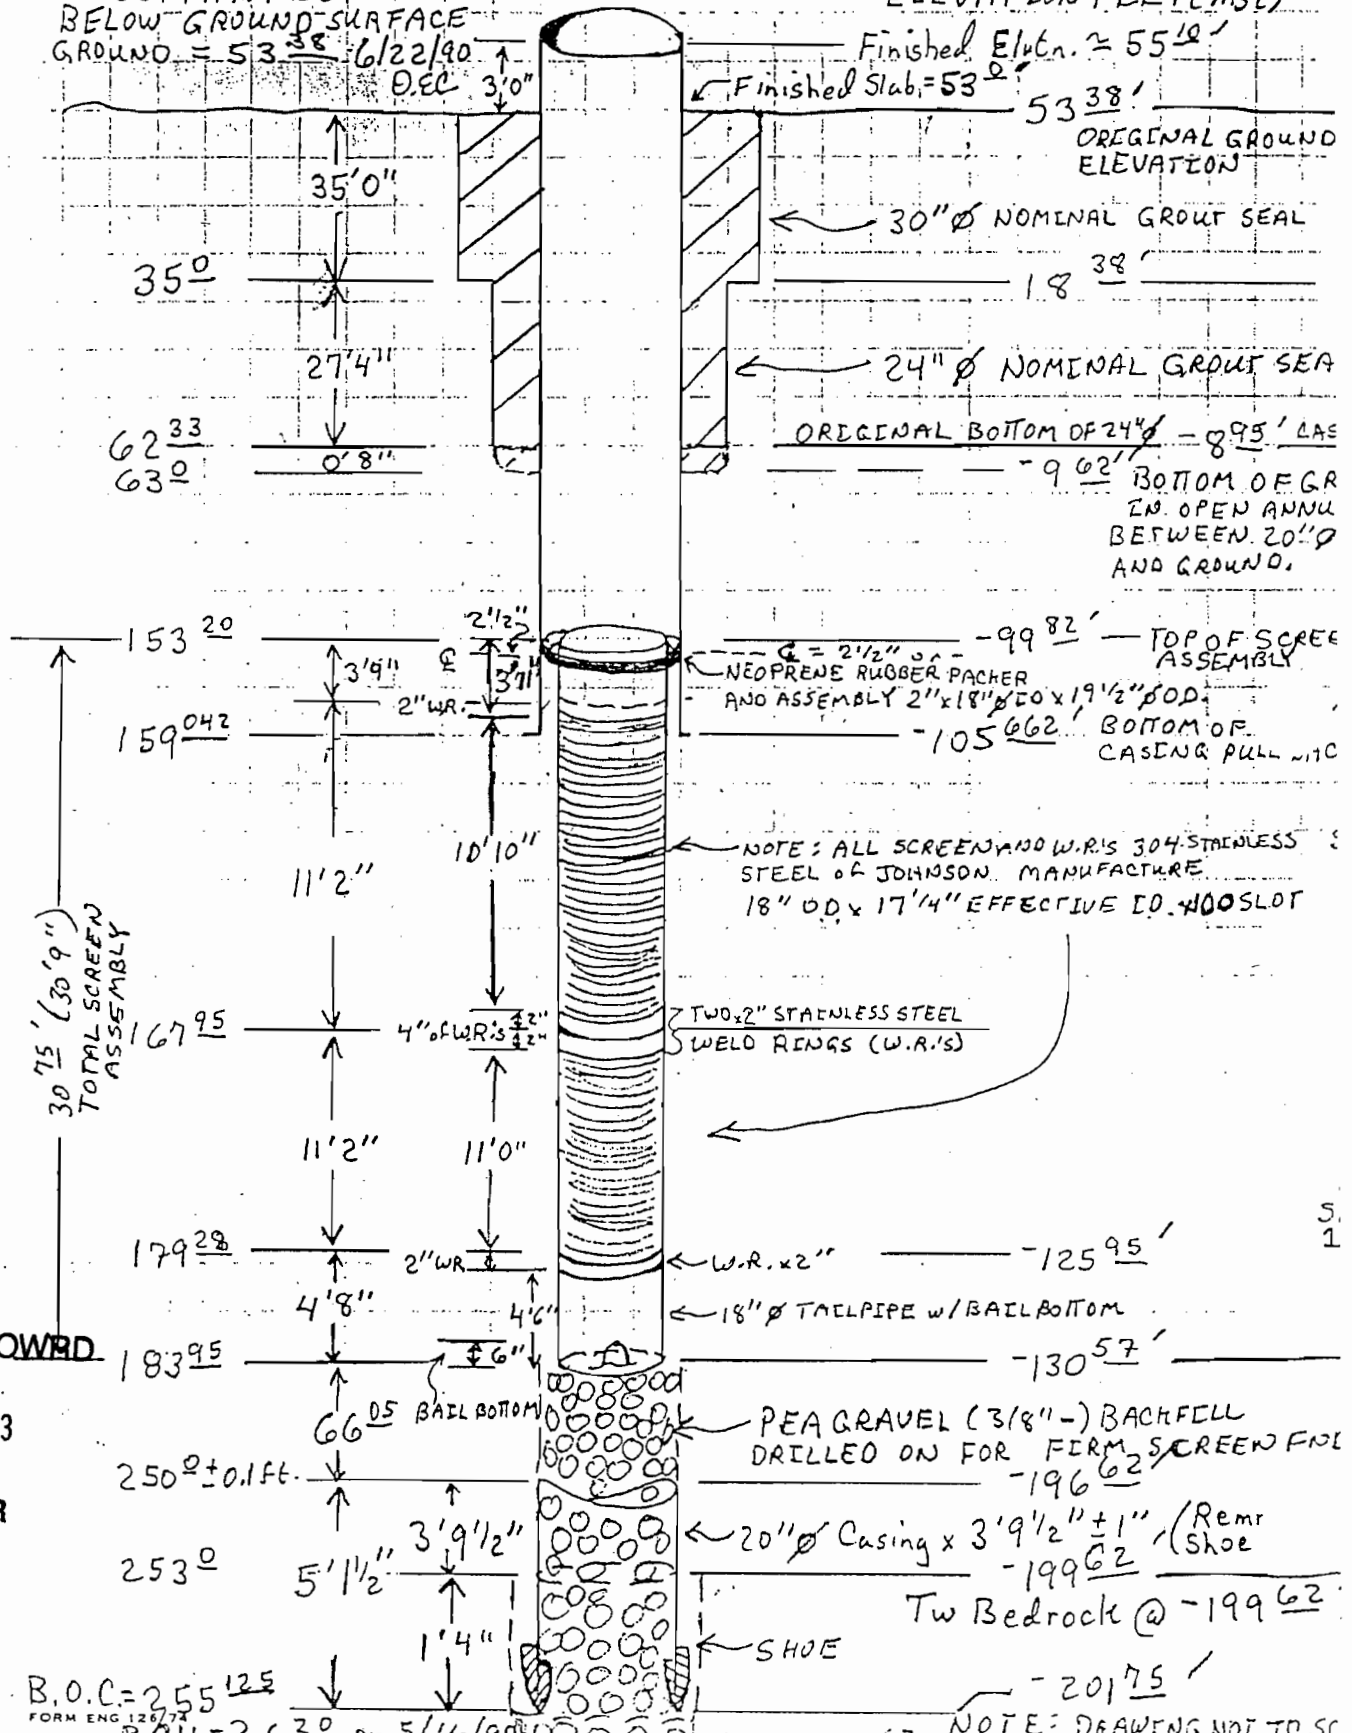 BELOW GROUND SURFACE
GROUND = 53 38 6/22/90
D.E.C
3'0"
Finished Elvtn. ≈ 55 10 '
Finished Slab = 53 0 '
53 38 '
ORIGINAL GROUND
ELEVATION
35'0"
30"Ø NOMINAL GROUT SEAL
35 0
18 38 '
27'4"
24"Ø NOMINAL GROUT SEA
62 33
ORIGINAL BOTTOM OF 24"Ø -8 95 ' CAS
63 0
0'8"
-9 62 '
BOTTOM OF GR
IN OPEN ANNU
BETWEEN 20"Ø
AND GROUND.
153 20
2 1/2"
-99 82 '
TOP OF SCREE
ASSEMBLY
3'9"
℄
℄ = 2 1/2"
NEOPRENE RUBBER PACKER
AND ASSEMBLY 2"x18"Ø ID x 19 1/2"Ø O.D.
2" W.R.
159 042
-105 662 '
BOTTOM OF
CASING PULL
11'2"
10'10"
NOTE: ALL SCREEN AND W.R.'S 304 STAINLESS
STEEL OF JOHNSON MANUFACTURE
18" O.D. x 17 1/4" EFFECTIVE I.D. 100 SLOT
30 75 ' (30'9")
TOTAL SCREEN
ASSEMBLY
167 95
4" of W.R.'s
2"
2"
TWO x 2" STAINLESS STEEL
WELD RINGS (W.R.'S)
11'2"
11'0"
179 28
2" WR
W.R. x 2"
-125 95 '
4'8"
4'6"
18"Ø TAILPIPE W/BAIL BOTTOM
183 95
6"
-130 57 '
66 05
BAIL BOTTOM
PEA GRAVEL (3/8"-) BACKFILL
DRILLED ON FOR FIRM SCREEN FN
250 0 ± 0.1 ft.
-196 62 '
3'9 1/2"
20"Ø Casing x 3'9 1/2" ± 1"
(Remr
Shoe
253 0
5'1 1/2"
-199 62
Tw Bedrock @ -199 62
1'4"
SHOE
B.O.C. = 255 125
-201 75 '
FORM ENG 126/74
NOTE: DRAWING NOT TO SC